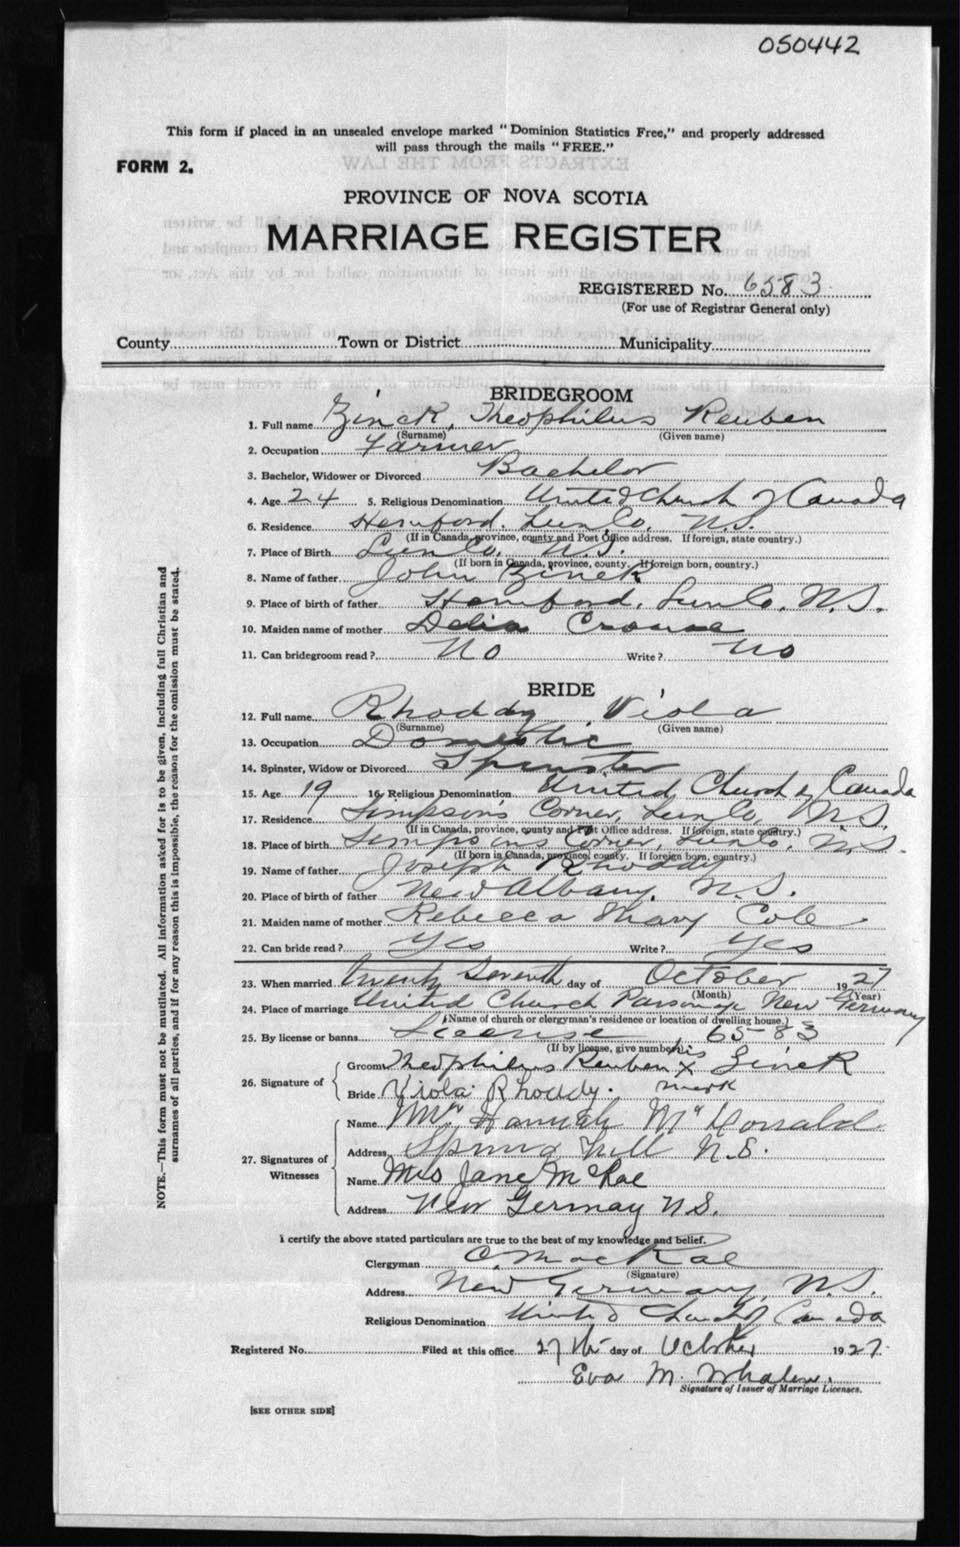 050442
This form if placed in an unsealed envelope marked "Dominion Statistics Free," and properly addressed
will pass through the mails "FREE."
FORM 2.
PROVINCE OF NOVA SCOTIA
MARRIAGE REGISTER
REGISTERED No. 6583
(For use of Registrar General only)
County Town or District Municipality
BRIDEGROOM
1. Full name Zinck, Theophilus Reuben
(Surname) (Given name)
2. Occupation Farmer
3. Bachelor, Widower or Divorced Bachelor
4. Age 24 5. Religious Denomination United Church of Canada
6. Residence Hemford, Lun Co. N.S.
(If in Canada, province, county and Post Office address. If foreign, state country.)
7. Place of Birth Lun Co. N.S.
(If born in Canada, province, county. If foreign born, country.)
8. Name of father John Zinck
9. Place of birth of father Hemford, Lun Co. N.S.
10. Maiden name of mother Delia Crouse
11. Can bridegroom read? No Write? No
BRIDE
12. Full name Rhoddy, Viola
(Surname) (Given name)
13. Occupation Domestic
14. Spinster, Widow or Divorced Spinster
15. Age 19 16. Religious Denomination United Church of Canada
17. Residence Simpson's Corner, Lun Co, N.S.
(If in Canada, province, county and Post Office address. If foreign, state country.)
18. Place of birth Simpsons Corner, Lun Co. N.S.
(If born in Canada, province, county. If foreign born, country.)
19. Name of father Joseph Rhoddy
20. Place of birth of father New Albany, N.S.
21. Maiden name of mother Rebecca Mary Cole
22. Can bride read? Yes Write? Yes
23. When married twenty Seventh day of October 1927
(Month) (Year)
24. Place of marriage United Church Parsonage New Germany
(Name of church or clergyman's residence or location of dwelling house.)
25. By license or banns License 65-83
(If by license, give number)
26. Signature of
Groom Theophilus Reuben his X mark Zinck
Bride Viola Rhoddy.
27. Signatures of Witnesses
Name Mrs Hannah McDonald
Address Spring Hill N.S.
Name Mrs Jane McRae
Address New Germay N.S.
I certify the above stated particulars are true to the best of my knowledge and belief.
Clergyman C. MacRae
(Signature)
Address New Germany, N.S.
Religious Denomination United Church of Canada
Registered No. Filed at this office 27th day of October 1927.
Eva M. Whalen.
Signature of Issuer of Marriage Licenses.
[SEE OTHER SIDE]
NOTE.—This form must not be mutilated. All information asked for is to be given, including full Christian and
surnames of all parties, and if for any reason this is impossible, the reason for the omission must be stated.